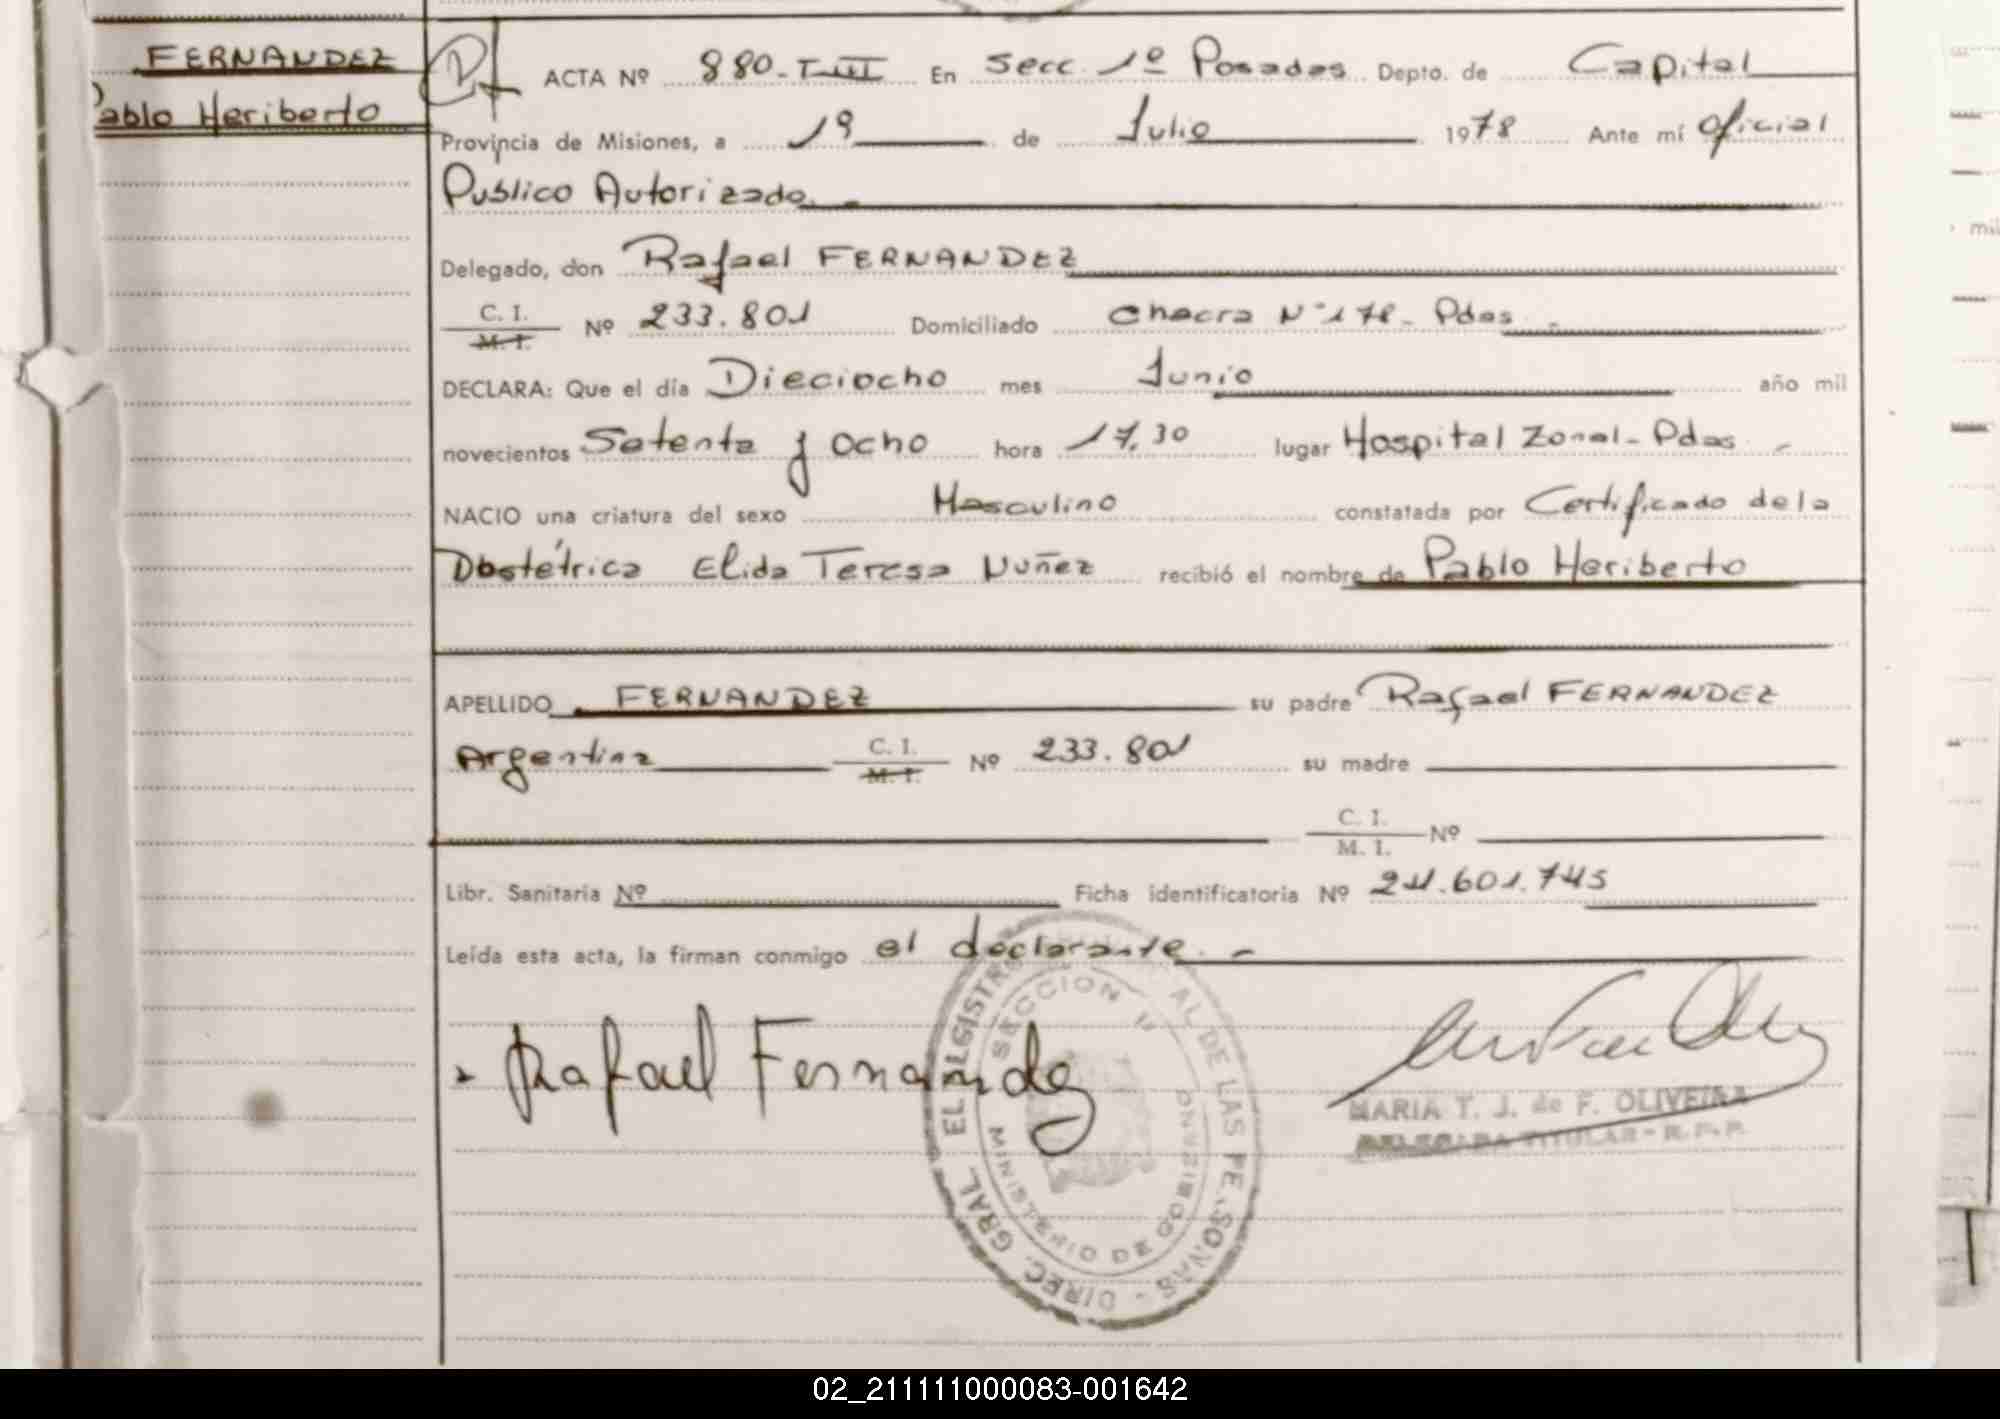 FERNANDEZ
Pablo Heriberto
ACTA Nº 880-T-III En Secc. 1º Posadas Depto. de Capital
Provincia de Misiones, a 19 de Julio 1978 Ante mí Oficial
Publico Autorizado.-
Delegado, don Rafael FERNANDEZ
C. I. / M. I. Nº 233.801 Domiciliado Chacra Nº178- Pdas.-
DECLARA: Que el día Dieciocho mes Junio año mil
novecientos Setenta y Ocho hora 17,30 lugar Hospital Zonal-Pdas.-
NACIO una criatura del sexo Masculino constatada por Certificado de la
Obstétrica Elida Teresa Nuñez recibió el nombre de Pablo Heriberto
APELLIDO FERNANDEZ su padre Rafael FERNANDEZ
Argentina C. I. / M. I. Nº 233.801 su madre
C. I. / M. I. Nº
Libr. Sanitaria Nº Ficha identificatoria Nº 24.601.745
Leída esta acta, la firman conmigo el declarante.-
Rafael Fernandez
DIREC. GRAL. EL REGISTRO AL DE LAS PERSONAS -
SECCION
MINISTERIO DE GOBIERNO
MARIA T. J. de F. OLIVEIRA
DELEGADA TITULAR - R. P. P.
02_211111000083-001642